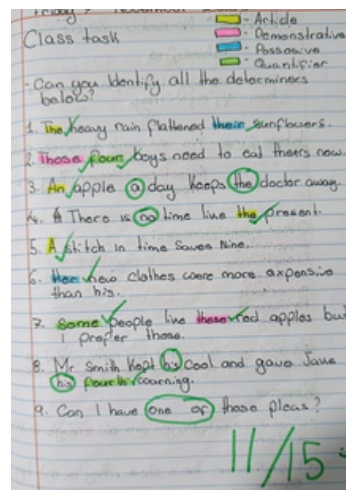 Friday 7 November
Class task
- Article
- Demonstrative
- Possesive
- Quantifier
- Can you identify all the determiners
below?
1. The heavy rain flattened their sunflowers.
2. Those four boys need to eat theirs now.
3. An apple a day keeps the doctor away.
4. There is no time like the present.
5. A stitch in time saves Nine.
6. Her new clothes were more expensive
than his.
7. Some people like these red apples but
I prefer those.
8. Mr Smith Kept his cool and gave Jane
his fourth warning.
9. Can I have one of those pleas?
11/15